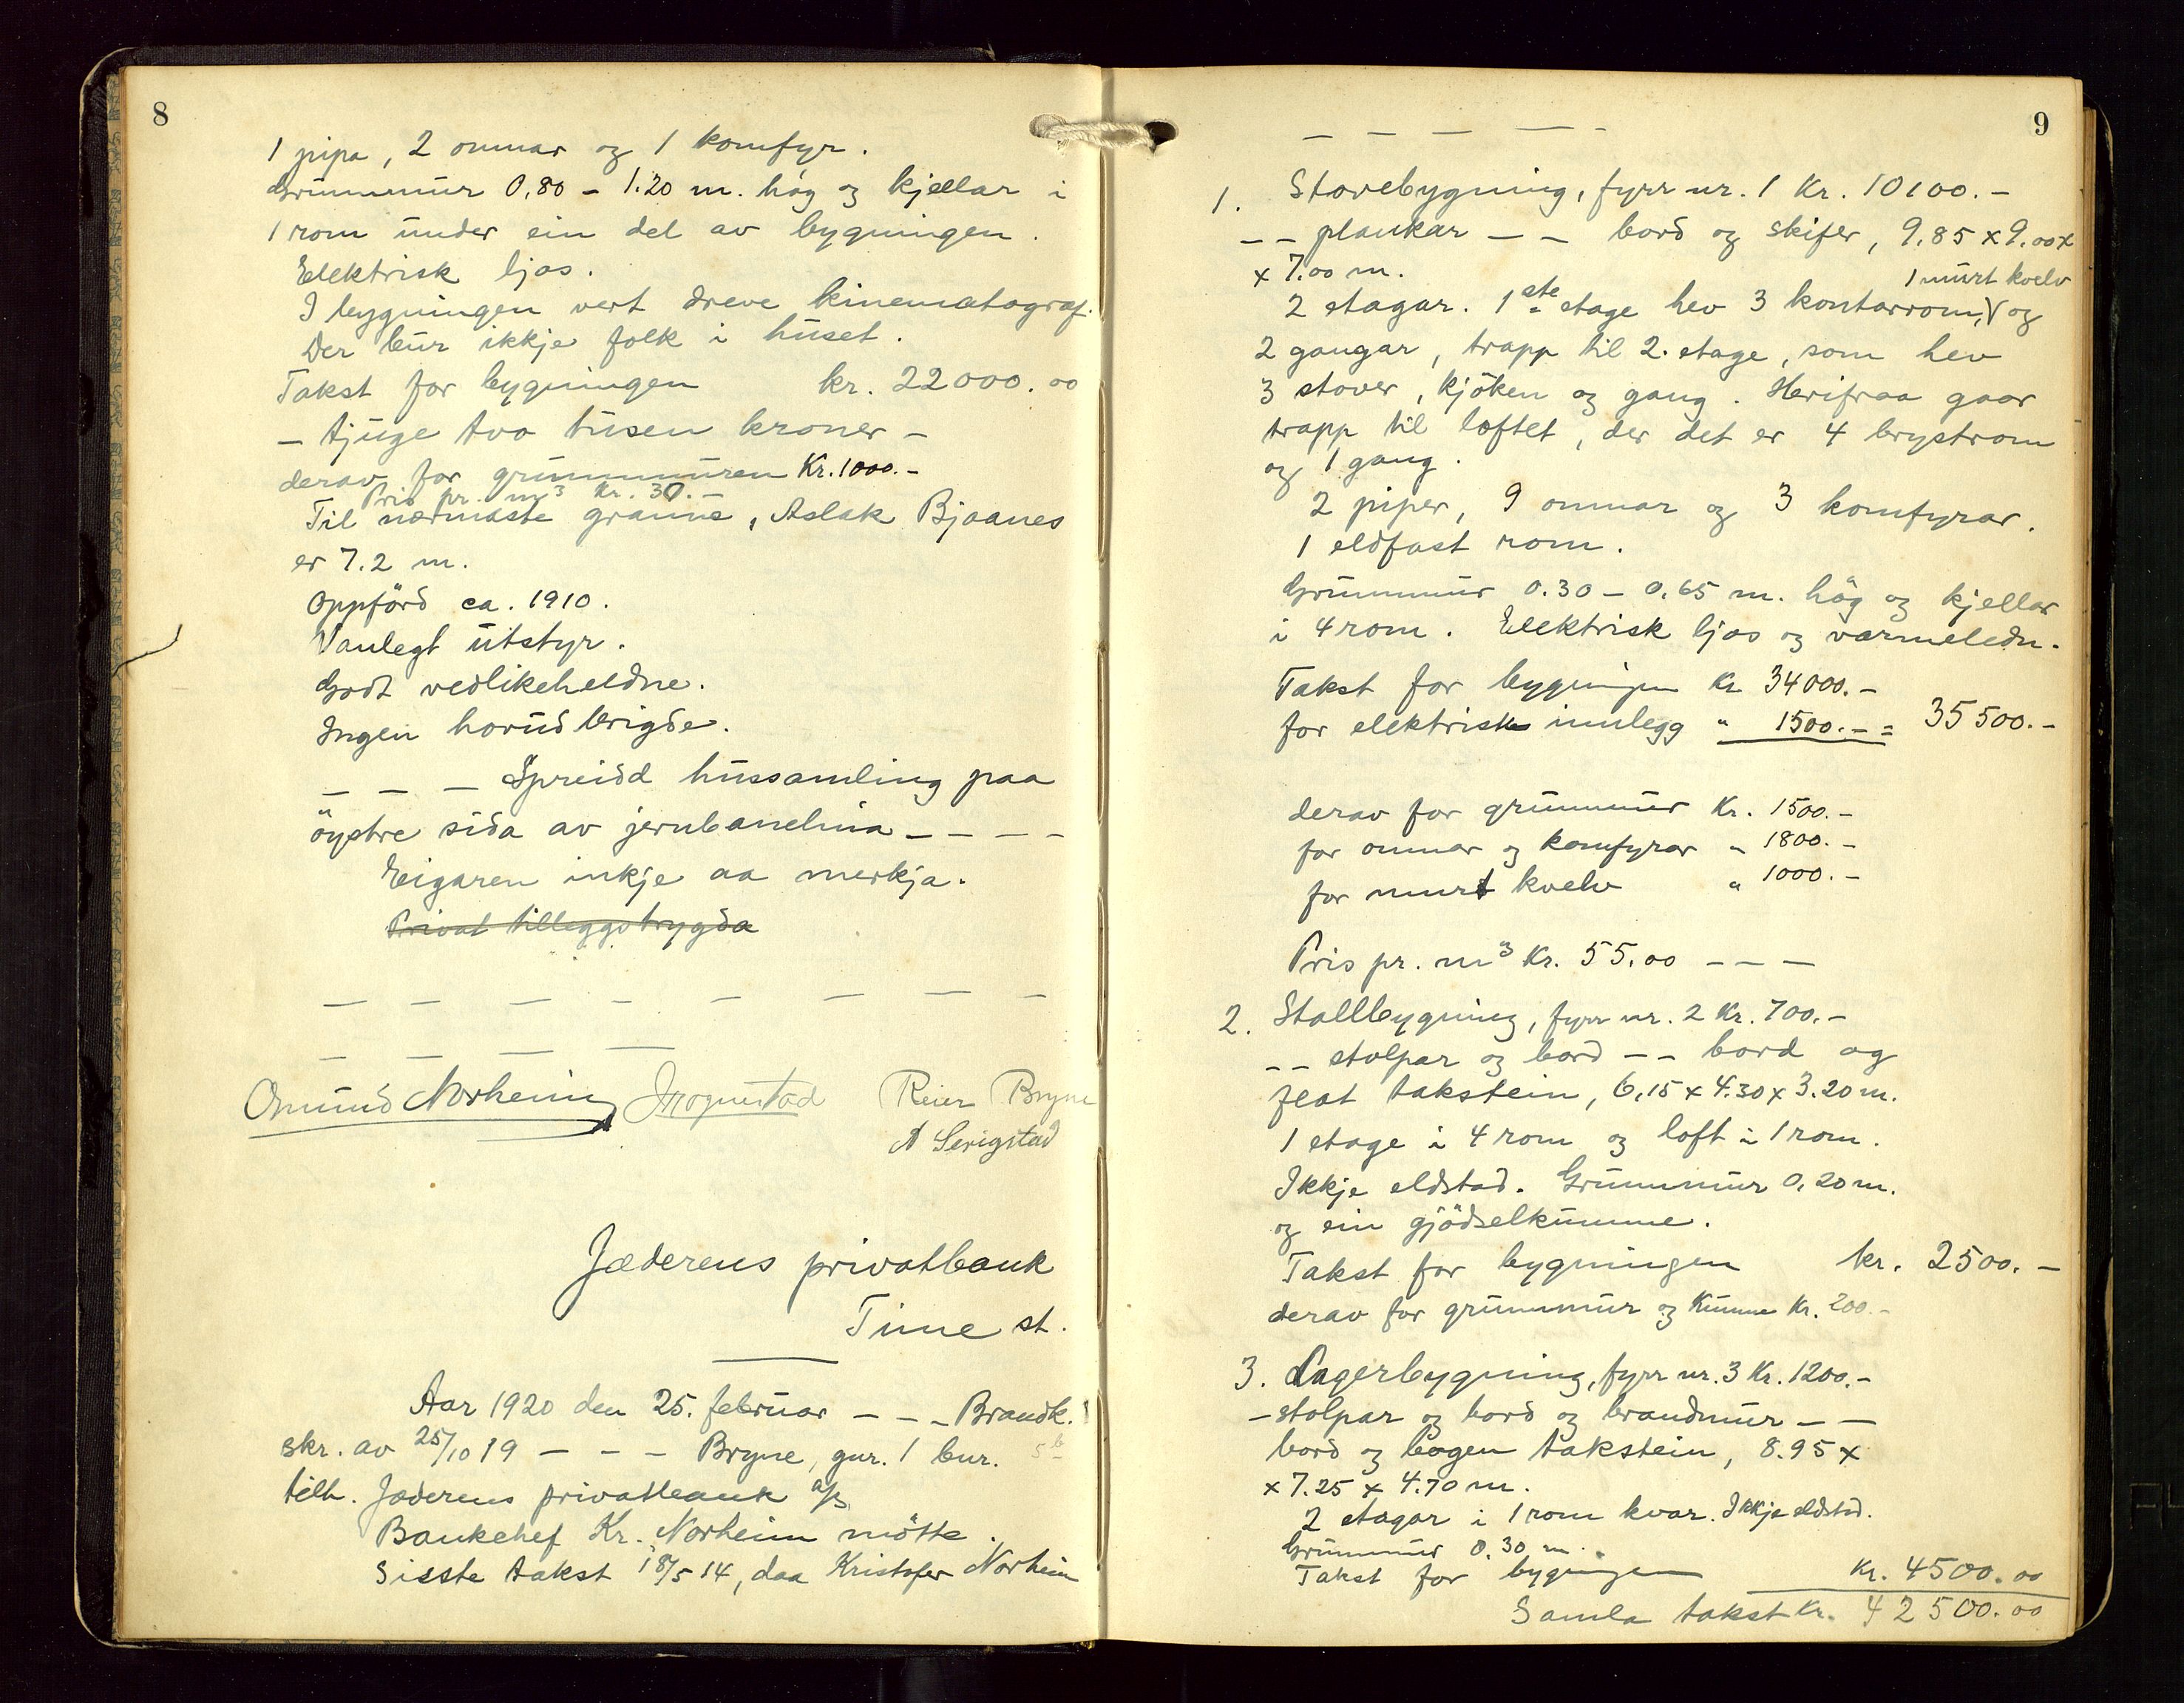 8
1 pipa, 2 omnar og 1 komfyr.
Grunnmur 0,80 - 1.20 m. høg og kjellar i
1 rom under ein del av bygningen.
Elektrisk ljos.
I bygningen vert dreve kinematograf.
Der bur ikkje folk i huset.
Takst for bygningen kr. 22000.00
- tjuge tvo tusen kroner -
derav for grunnmuren Kr. 1000.-
Pris pr. m3 kr. 30.-
Til nærmaste granne, Aslak Bjaanes
er 7.2 m.
Oppförd ca. 1910.
Vanlegt utstyr.
Godt vedlikeheldne.
Ingen horudbrigde.
_ _ _ Spreidd hussamling paa
öystre sida av jernbanelina _ _ _ _
Eigaren inkje aa merkja.
Privat tilleggstrygda
_ _ _ _ _ _ _ _
_ _ _ _
Omund Norheim Reier Bryne
A Serigstad
Jæderens privatbank
Time st.
Aar 1920 den 25. februar - - - Brandk.
skr. av 25/10 19 - - - Bryne, gnr. 1 bnr. 5b
tilh. Jæderens privatbank a/s.
Bankchef Kr. Norheim mötte.
Sisste takst 18/5 14, daa Kristofer Norheim
9
_ _ _ _ _
1. Stovebygning, fyrr nr. 1 Kr. 10100.-
- - plankar - - bord og skifer, 9,85 x 9.00 x
x 7.00 m.
1 murt kvelv
2 etagar. 1ste etage hev 3 kontorrom, og
2 gangar, trapp til 2. etage, som hev
3 stover, kjöken og gang. Herifraa gaar
trapp til loftet, der det er 4 brystrom
og 1 gang.
2 piper, 9 omnar og 3 komfyrar.
1 eldfast rom.
Grunnmur 0.30 - 0,65 m. hög og kjellar
i 4 rom. Elektrisk ljos og varmeledn.
Takst for bygningen Kr 34000.-
for elektrisk innlegg " 1500.- = 35500.-
derav for grunnmur Kr. 1500.-
for omnar og komfyrar " 1800.-
for murt kvelv " 1000.-
Pris pr. m3 Kr. 55,00 - - -
2. Stallbygning, fyrr nr. 2 Kr. 700.-
- - stolpar og bord - - bord og
flat takstein, 6,15 x 4.30 x 3.20 m.
1 etage i 4 rom og loft i 1 rom.
Ikkje eldstad. Grunnmur 0,20 m.
og ein gjödselkumme.
Takst for bygningen kr. 2500.-
derav for grunnmur og Kumme Kr. 200.-
3. Lagerbygning, fyrr nr. 3 Kr. 1200.-
- stolpar og bord og brandmur - -
bord og bogen takstein, 8.95 x
x 7.25 x 4.70 m.
2 etagar i 1 rom kvar. Ikkje eldstad.
Grunnmur 0.30 m.
Takst for bygningen Kr. 4500.00
Samla takst Kr. 42500.00